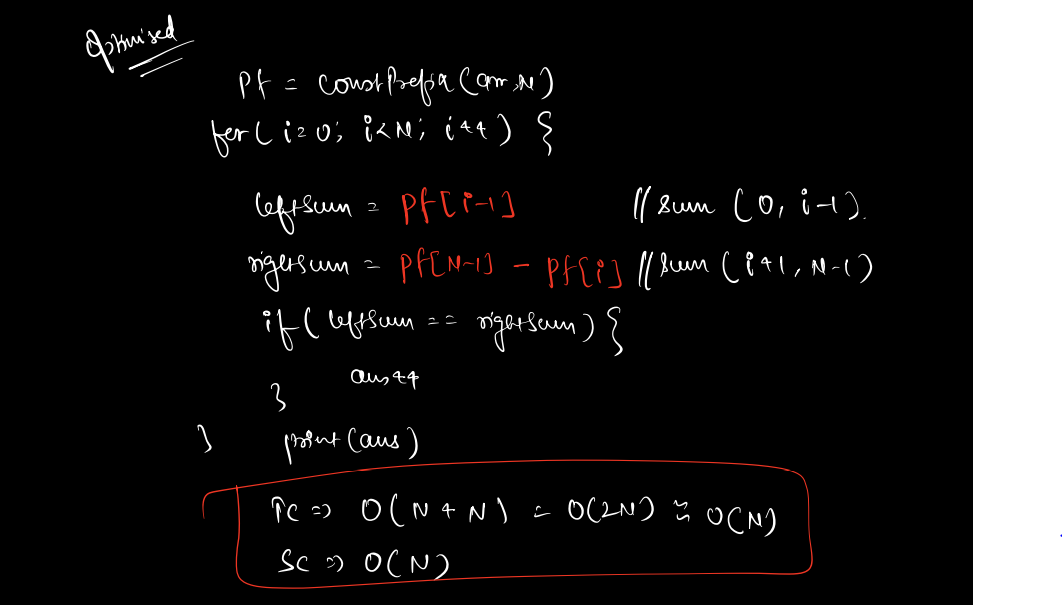 Optimised
Pf = constPrefix(arr, N)
for( i=0; i<N; i++) {
leftSum = Pf[i-1] // sum (0, i-1).
rightsum = Pf[N-1] - Pf[i] // sum (i+1, N-1)
if( leftSum == rightSum) {
ans++
}
} print(ans)
TC => O(N+N) = O(2N) ≈ O(N)
SC => O(N)